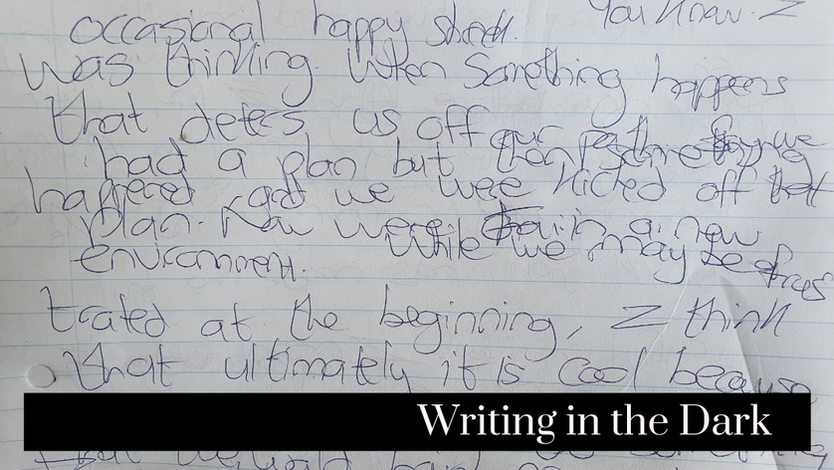 occasional happy shreek. You know. I
was thinking. When Something happens
that deters us off our path. Say we
had a plan but then something
happened and we were kicked off that
plan. Now were in a new
environment. While we may be frus
trated at the beginning, I think
that ultimately it is cool because
Writing in the Dark